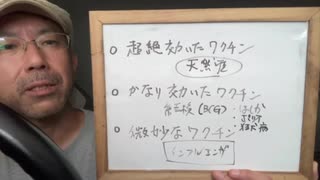 ○ 超絶効いたワクチン
天然痘
○ かなり効いたワクチン
結核(BCG)・はしか
・ポリオ
・狂犬病
○ 微妙なワクチン
インフルエンザ